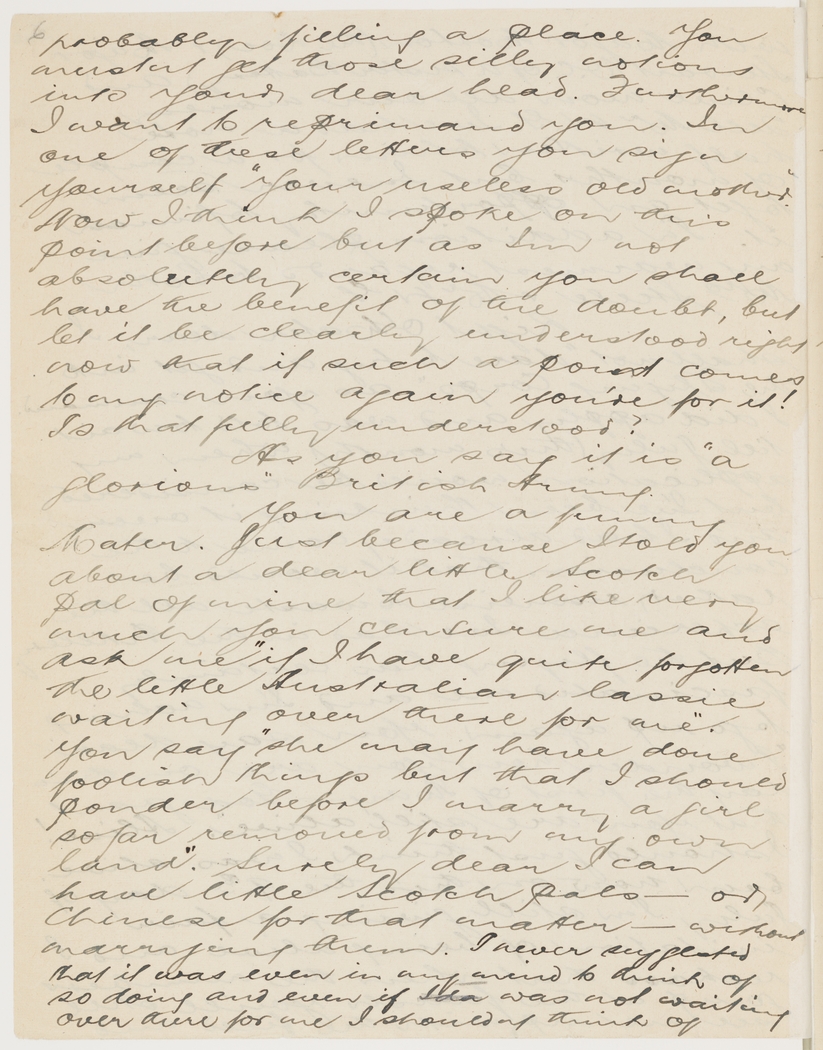 6
probably filling a place. You
mustnt get those silly notions
into your dear head. Furthermore
I want to reprimand you. In
one of these letters you sign
yourself "Your useless old mother".
Now I think I spoke on this
point before but as Im not
absolutely certain you shall
have the benefit of the doubt, but
let it be clearly understood right
now that if such a point comes
to my notice again you're for it!
Is that fully understood?
As you say it is "a
glorious" British Army.
You are a funny
Mater. Just because I told you
about a dear little Scotch
Pal of mine that I like very
much you censure me and
ask me "if I have quite forgotten
the little Australian lassie
waiting over there for me".
You say "she may have done
foolish things but that I should
ponder before I marry a girl
so far removed from my own
land". Surely dear I can
have little Scotch Pals — or
Chinese for that matter — without
marrying them. I never suggested
that it was even in my mind to think of
so doing and even if Ida was not waiting
over there for me I shouldnt think of